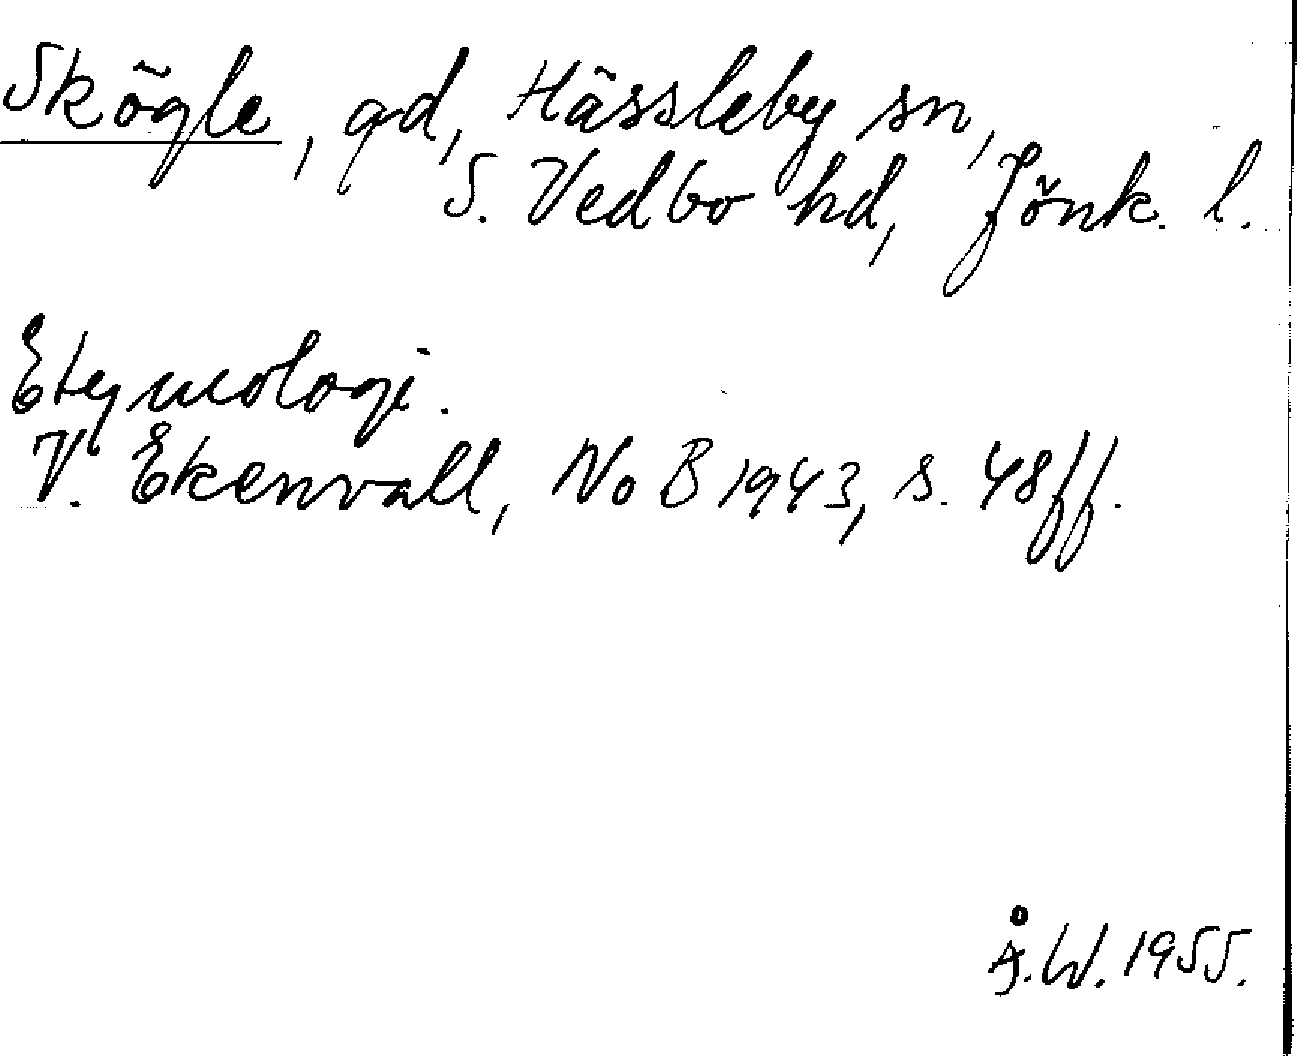 Skögle, gd, Hässleby sn,
S. Vedbo hd, Jönk. l.
Etymologi.
V. Ekenvall, NoB 1943, s. 48 ff.
Å.W. 1955.